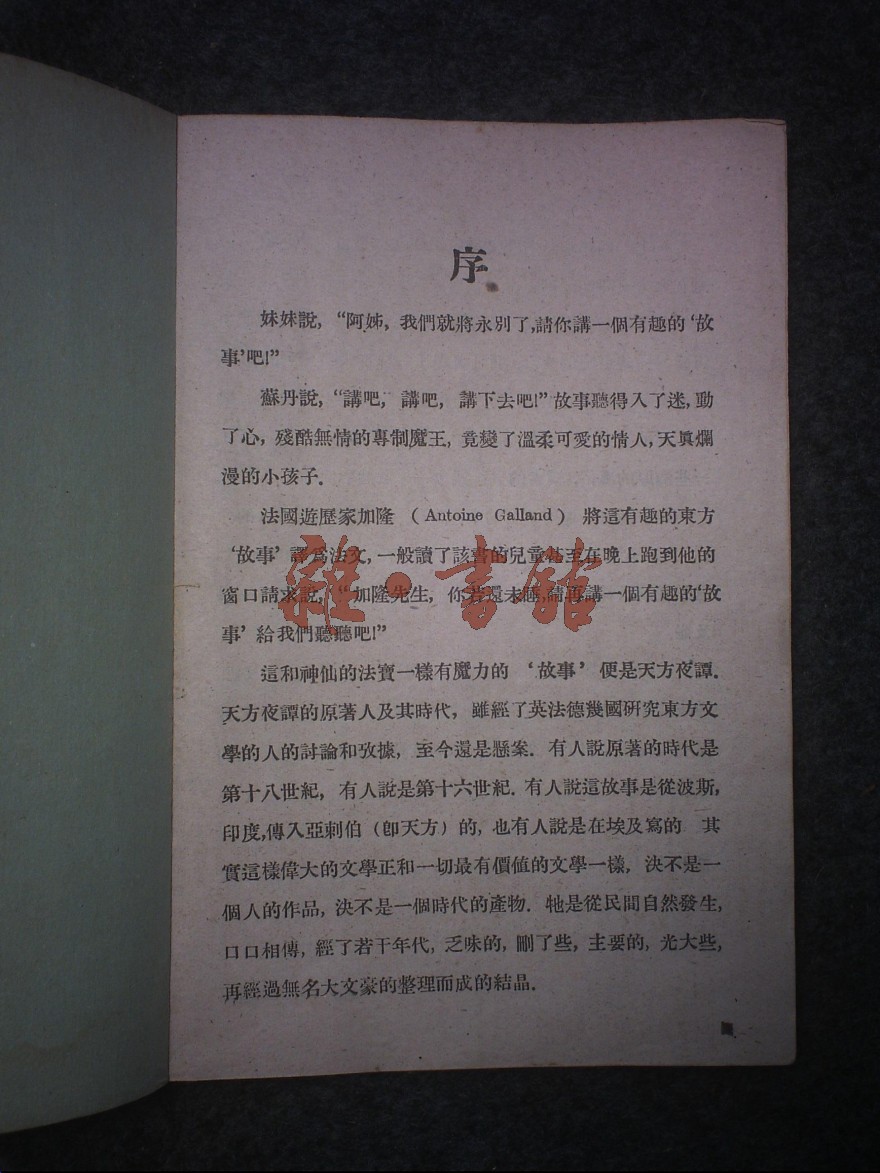 序
妹妹說，“阿姊，我們就將永別了，請你講一個有趣的‘故
事’吧！”
蘇丹說，“講吧，講吧，講下去吧！”故事聽得入了迷，動
了心，殘酷無情的專制魔王，竟變了溫柔可愛的情人，天眞爛
漫的小孩子．
法國遊歷家加隆（Antoine Galland）將這有趣的東方
‘故事’譯爲法文，一般讀了該書的兒童甚至在晚上跑到他的
窗口請求說，“加隆先生，你若還未睡，請再講一個有趣的‘故
事’給我們聽聽吧！”
這和神仙的法寶一樣有魔力的‘故事’便是天方夜譚．
天方夜譚的原著人及其時代，雖經了英法德幾國研究東方文
學的人的討論和攷據，至今還是懸案．有人說原著的時代是
第十八世紀，有人說是第十六世紀．有人說這故事是從波斯，
印度，傳入亞剌伯（卽天方）的，也有人說是在埃及寫的 其
實這樣偉大的文學正和一切最有價値的文學一樣，決不是一
個人的作品，決不是一個時代的產物．牠是從民間自然發生，
口口相傳，經了若干年代，乏味的，刪了些，主要的，光大些，
再經過無名大文豪的整理而成的結晶．
雜·書舘